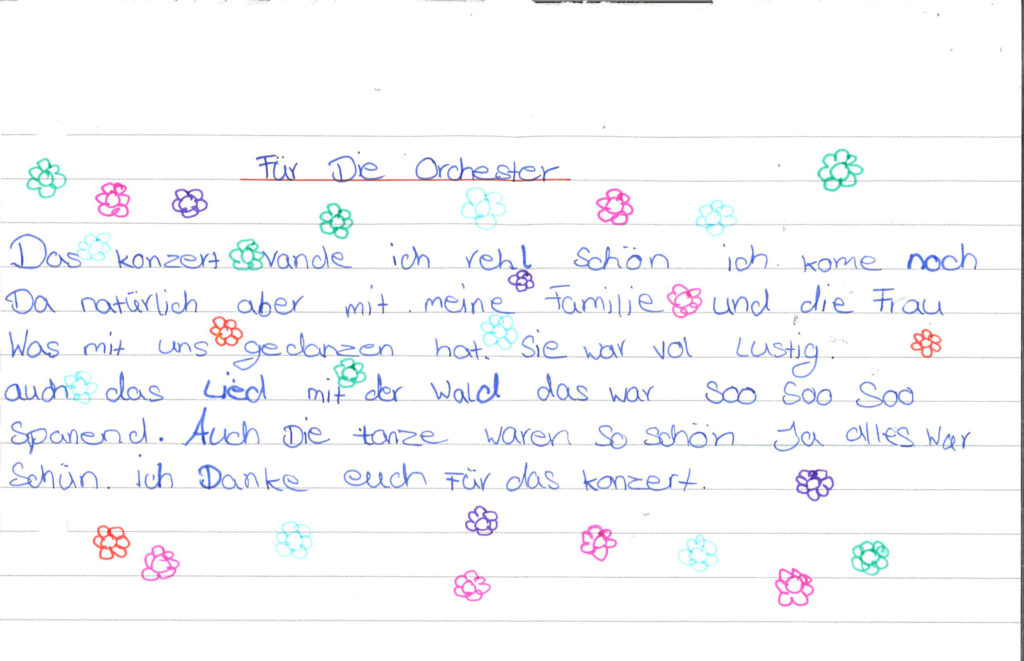 Für Die Orchester
Das konzert vande ich rehl schön ich kome noch
Da natürlich aber mit meine Familie und die Frau
Was mit uns gedanzen hat. Sie war vol Lustig.
auch das Lied mit der Wald das war soo soo soo
spanend. Auch Die tanze waren so schön Ja alles war
schün. ich Danke euch Für das konzert.